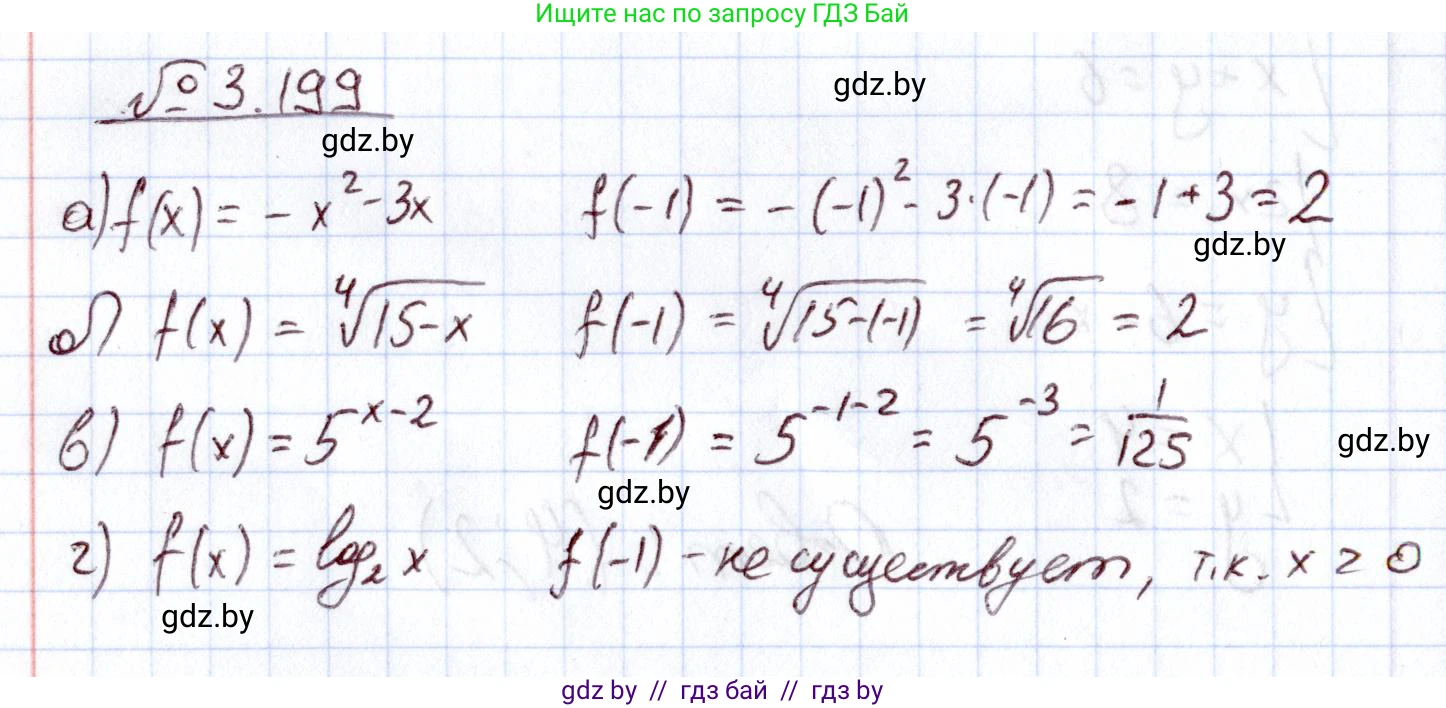 Ищите нас по запросу ГДЗ Бай
№ 3.199
gdz.by
gdz.by
а) f(x) = - x² - 3x f(-1) = - (-1)² - 3·(-1) = -1 + 3 = 2
gdz.by
б) f(x) = ⁴√15-x f(-1) = ⁴√15-(-1) = ⁴√16 = 2
в) f(x) = 5^(x-2) f(-1) = 5^(-1-2) = 5^(-3) = 1/125
gdz.by
gdz.by
г) f(x) = log₂ x f(-1) - не существует, т.к. x > 0
gdz.by
gdz by // гдз бай // гдз by